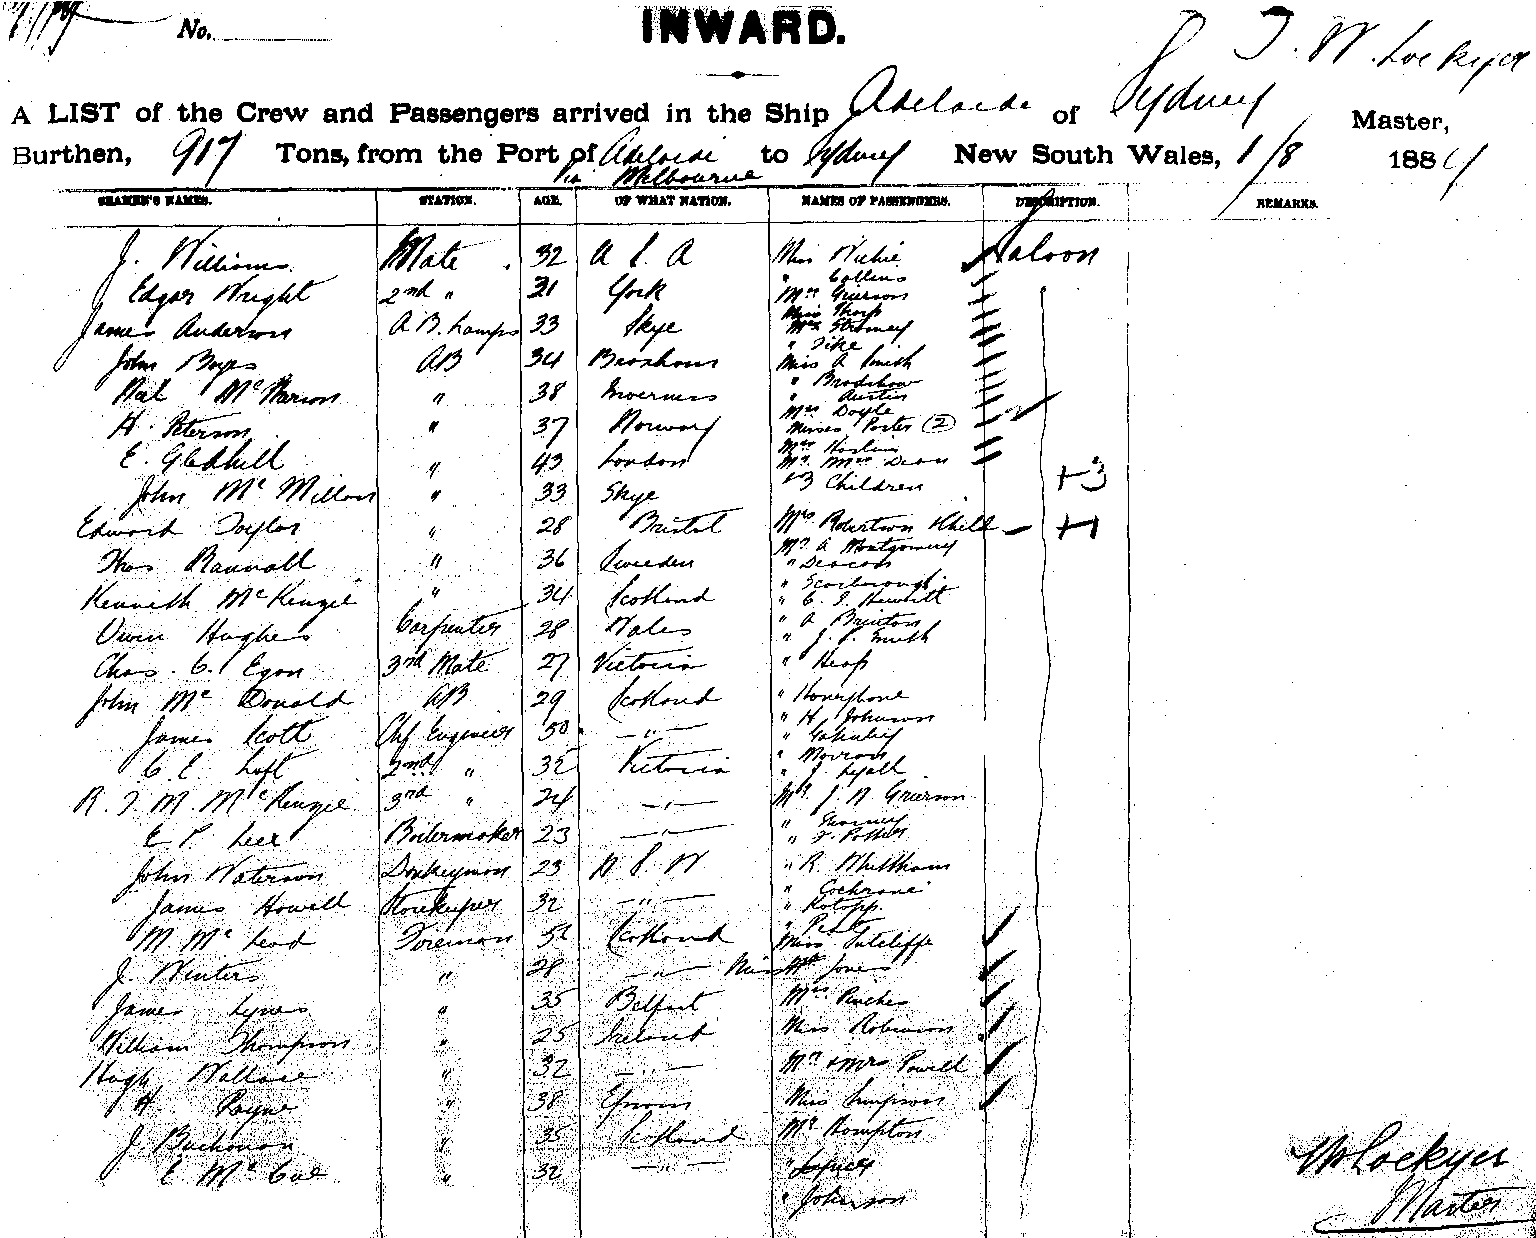 No.
INWARD.
T. W. Lockyer
A LIST of the Crew and Passengers arrived in the Ship Adelaide of Sydney Master,
Burthen, 917 Tons, from the Port of Adelaide to Sydney New South Wales, 1/8 1884
via Melbourne
SEAMEN'S NAMES. STATION. AGE. OF WHAT NATION. NAMES OF PASSENGERS. DESCRIPTION. REMARKS.
J. Williams Mate 32 Miss Saloon
" Collins
Edgar Wright 2nd " 21 York Mrs Grierson
Miss Thorp
James Anderson A B. Lamps 33 Skye Mrs
" Pike
John AB 34 Miss A Smith
" Bradshaw
Neil 38 Inverness " Austin
Mrs Doyle
H. Peterson " 37 Norway Misses Porter (2)
Mrs Hoskin
E. Gledhill " 43 London Mr. Mrs Dean
+3 Children +3
John McMillan " 33 Skye
Edward Taylor " 28 Bristol Mrs Robertson +1
Mr. A Montgomery
Thos " 36 Sweden " Deacon
" Scarborough
Kenneth McKenzie " 34 Scotland " C. J. Hewitt
" A Brinton
Owen Hughes Carpenter 28 Wales " J. P. Smith
Chas. C. Egan 3rd Mate 27 Victoria " Heap
John McDonald AB 29 Scotland " Honeybone
" H Johnson
James Scott Chf Engineer 50 — " —
" Morrow
C. E. Loft 2nd " 32 Victoria " J Lyall
R. J. M. McKenzie 3rd " 24 — " — Mr. J. N Grierson
E P. Leer Boilermaker 23 — " —
John Waterson Donkeyman 23 N S W " R.
" Cochrane
James Howell Storekeeper 32 — " —
M. McLeod Foreman 52 Scotland Miss Sutcliffe
J. Winters " 28 — " — Miss Jones
James Lynes " 35 Belfast Mrs
William Thompson " 25 Ireland Miss Robinson
Hugh Wallace " 32 — " — Mr + Mrs Powell
H. Payne " 38 Epsom Miss Simpson
J. Buchanan " 35 Scotland Mr Kompton
E. " 32 — " —
" Johnson
W Lockyer
Master